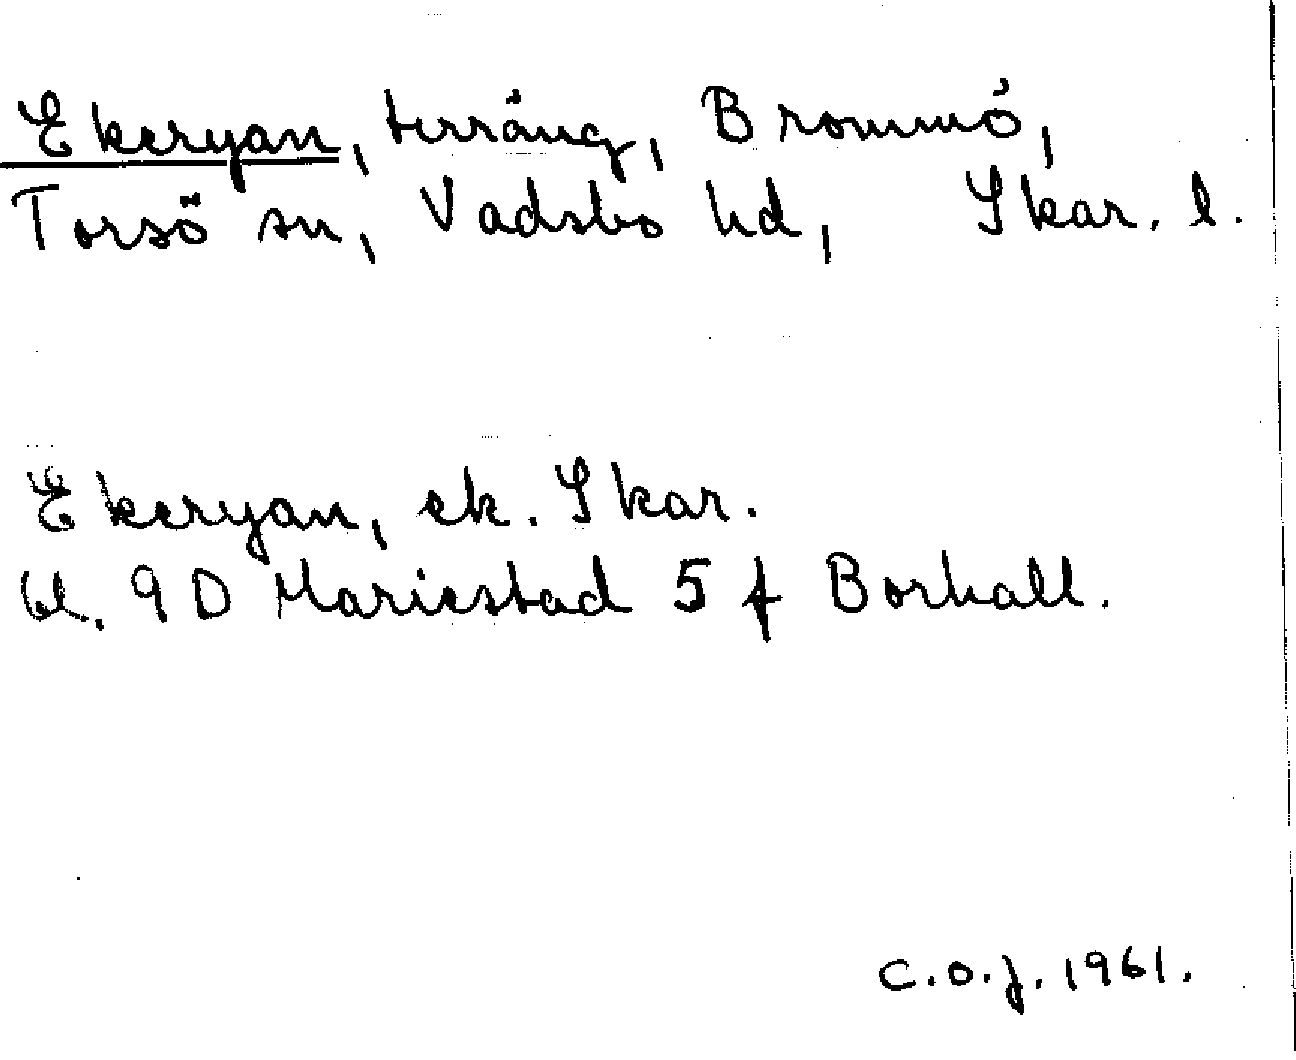 Ekeryan, terräng, Brommö,
Torsö sn, Vadsbo hd, Skar. l.
Ekeryan, ek. Skar.
bl. 9D Mariestad 5 f Borhall.
C.O.J. 1961.